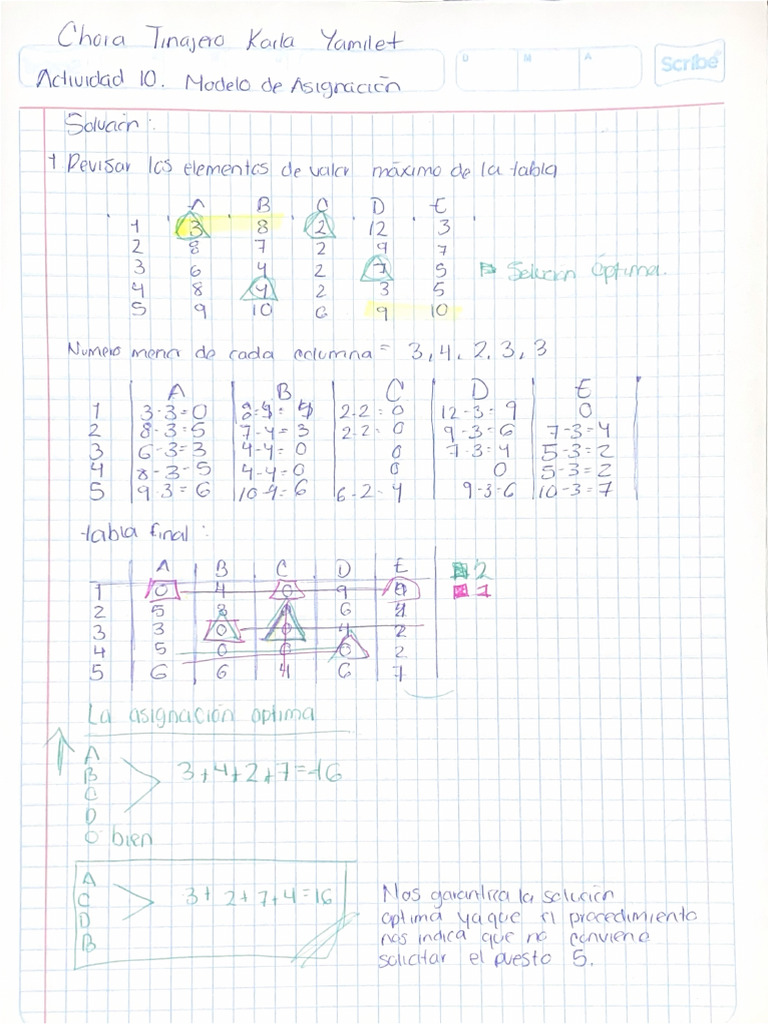 Chora Tinajero Karla Yamilet
D M A Scribe
Actividad 10. Modelo de Asignación
Solución:
+ Revisar los elementos de valor máximo de la tabla
A B C D E
1 3 8 2 12 3
2 8 7 2 9 7
3 6 4 2 7 5 Solución Óptima.
4 8 4 2 3 5
5 9 10 6 9 10
Numero menor de cada columna = 3, 4, 2, 3, 3
A B C D E
1 3-3=0 8-4=4 2-2=0 12-3=9 0
2 8-3=5 7-4=3 2-2=0 9-3=6 7-3=4
3 6-3=3 4-4=0 0 7-3=4 5-3=2
4 8-3-5 4-4=0 0 0 5-3=2
5 9-3=6 10-4=6 6-2=4 9-3-6 10-3=7
tabla final:
A B C D E 2
1 0 4 0 9 0 1
2 5 3 6 4
3 3 0 0 4 2
4 5 0 0 0 2
5 6 6 4 6 7
La asignación optima
A
B 3+4+2+7=16
C
D
O bien
A
C 3+2+7+4=16
D
B
Nos garantiza la solución
optima ya que el procedimiento
nos indica que no conviene
solicitar el puesto 5.